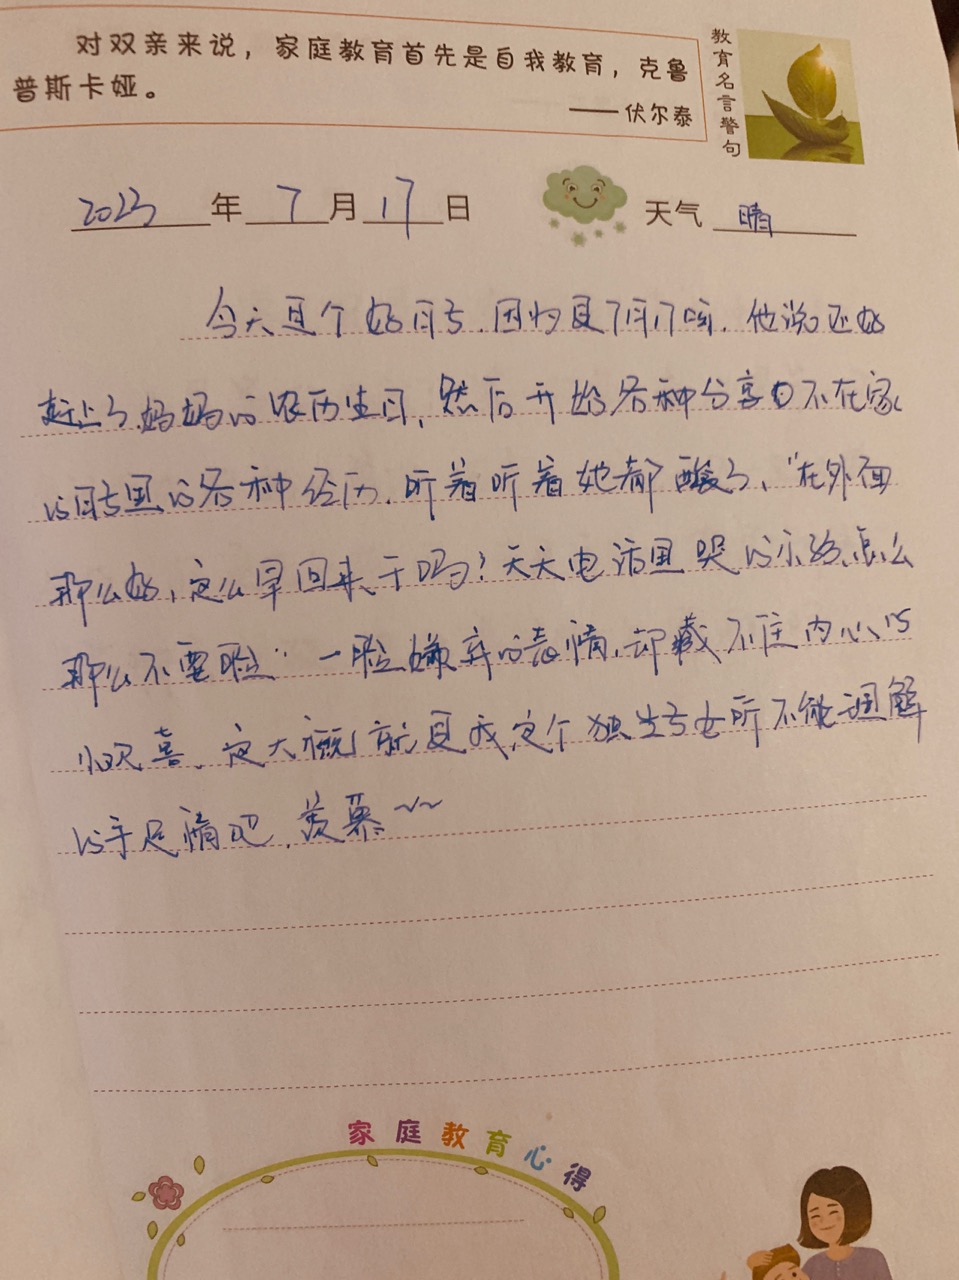 对双亲来说，家庭教育首先是自我教育，克鲁
普斯卡娅。
——伏尔泰
教育名言警句
2023年7月17日
天气 晴
今天是个好日子，因为是7月17啊，他说还好
赶上了妈妈的农历生日，然后开始各种分享不在家
的日子里的各种经历，听着听着她都酸了，“在外面
那么好，这么早回来干吗？天天电话里哭的示弱，怎么
那么不要脸”一脸嫌弃的表情，却藏不住内心的
小欢喜，这大概就是我这个独生子女所不能理解
的手足情吧，羡慕~~
家庭教育心得